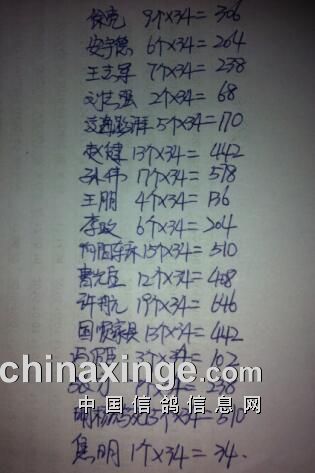 徐亮 9个×34= 306
安宇德 6个×34= 204
王志军 7个×34= 238
刘志强 2个×34= 68
5个×34= 170
赵健 13个×34= 442
孙伟 17个×34= 578
王朋 4个×34= 136
李政 6个×34= 204
15个×34= 510
曹 12个×34= 408
许 19个×34= 646
国 家具 13个×34= 442
3个×34= 102
chinaxinge.com
7个×34= 238
中国信鸽信息网
15个×34= 510
焦明 1个×34= 34.